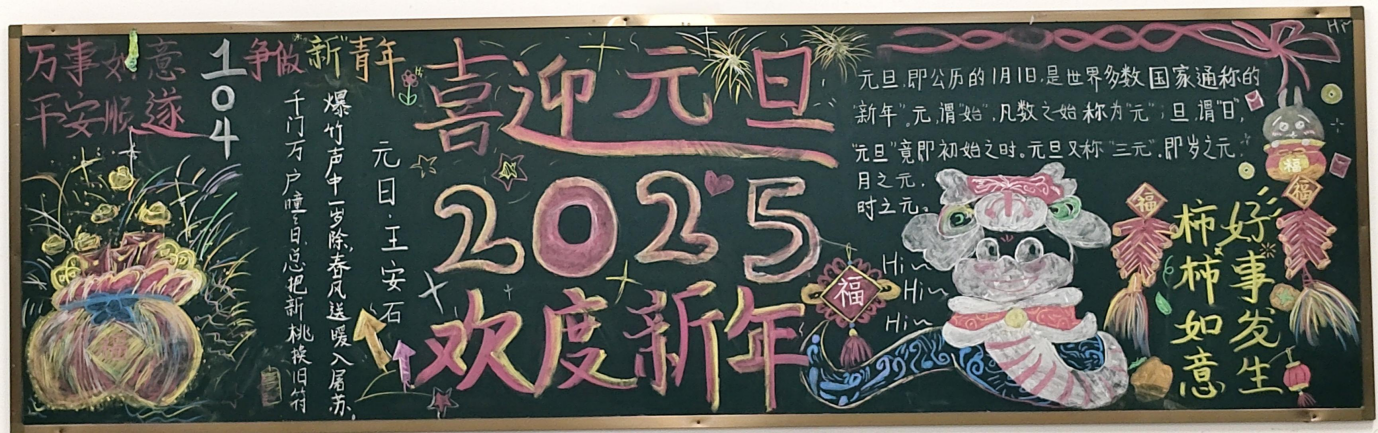 万事如意
平安顺遂
104
争做"新"青年
元日·王安石
爆竹声中一岁除,春风送暖入屠苏.
千门万户曈曈日总把新桃换旧符
喜迎元旦
2025
欢度新年
元旦,即公历的1月1日,是世界多数国家通称的
"新年"。元,谓"始",凡数之始称为"元";旦,谓"日",
"元旦"意即初始之时。元旦又称"三元",即岁之元、
月之元,
时之元。
福
Hi~
Hi~
Hi~
福
好事发生
柿柿如意
福
福
Hi~